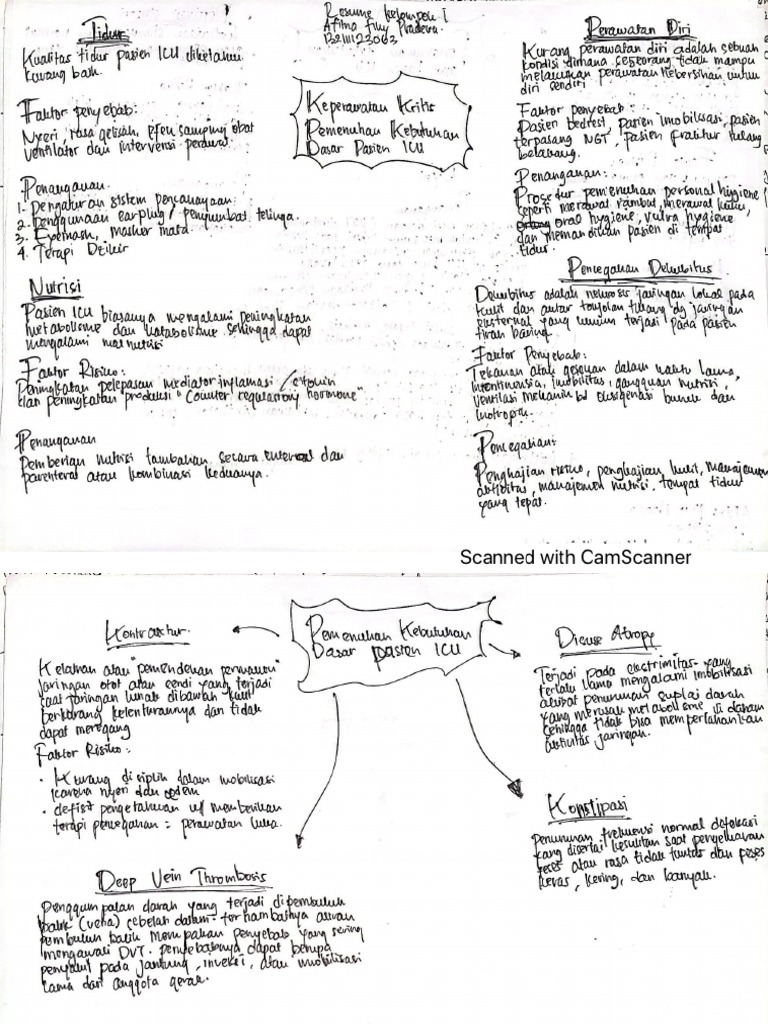 Resume Kelompok I
B2111123063
Keperawatan Kritis
Pemenuhan Kebutuhan
Dasar Pasien ICU
Tidur
Kualitas tidur pasien ICU diketahui
kurang baik.
Faktor penyebab:
Nyeri, rasa gelisah, efek samping obat
ventilator dan intervensi perawat
Penanganan
1. Pengaturan sistem pencahayaan
2. Penggunaan earplug / penyumbat telinga.
3. Eyemask, masker mata
4. Terapi Dzikir
Nutrisi
Pasien ICU biasanya mengalami peningkatan
metabolisme dan katabolisme sehingga dapat
mengalami malnutrisi
Faktor Risiko:
Peningkatan pelepasan mediator inflamasi / citokin
dan peningkatan produksi "Counter regulatory hormone"
Penanganan
Pemberian nutrisi tambahan secara enteral dan
parenteral atau kombinasi keduanya.
Perawatan Diri
Kurang perawatan diri adalah sebuah
kondisi dimana seseorang tidak mampu
melakukan perawatan kebersihan untuk
diri sendiri
Faktor penyebab:
Pasien bedrest, pasien imobilisasi, pasien
terpasang NGT, pasien fraktur tulang
belakang.
Penanganan:
Prosedur pemenuhan personal hygiene
seperti merawat rambut, merawat kuku,
oral hygiene, vulva hygiene
dan memandikan pasien di tempat
tidur.
Pencegahan Dekubitus
Dekubitus adalah nekrosis jaringan lokal pada
kulit dan antar tonjolan tulang dg jaringan
eksternal yang umum terjadi pada pasien
tirah baring.
Faktor Penyebab:
Tekanan atau gesekan dalam waktu lama,
inkontinensia, imobilitas, gangguan nutrisi,
ventilasi mekanik oksigenasi buruk dan
inotropik.
Pencegahan:
Pengkajian risiko, pengkajian kulit, manajemen
aktivitas, manajemen nutrisi, tempat tidur
yang tepat.
Scanned with CamScanner
Pemenuhan Kebutuhan
Dasar pasien ICU
Kontraktur.
Kelainan atau "pemendekan permanen"
jaringan otot atau sendi yang terjadi
saat jaringan lunak dibawah kulit
berkurang kelenturannya dan tidak
dapat meregang
Faktor Risiko:
• Kurang disiplin dalam mobilisasi
karena nyeri dan edem
• defisit pengetahuan u/ memberikan
terapi pencegahan = perawatan luka.
Disuse Atropy
Terjadi pada ekstrimitas yang
terlalu lama mengalami imobilisasi
akibat penurunan suplai darah
yang merusak metabolisme di dalam
sehingga tidak bisa mempertahankan
aktivitas jaringan.
Konstipasi
Penurunan frekuensi normal defekasi
yang disertai kesulitan saat pengeluaran
feses atau rasa tidak tuntas dan feses
keras, kering, dan banyak.
Deep Vein Thrombosis
Penggumpalan darah yang terjadi dipembuluh
balik (vena) sebelah dalam. terhambatnya aliran
pembuluh balik merupakan penyebab yang sering
mengawali DVT. penyebabnya dapat berupa
penyakit pada jantung, infeksi, atau imobilisasi
lama dari anggota gerak.